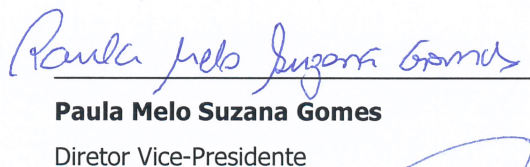 Paula Melo Suzana Gomes
Paula Melo Suzana Gomes
Diretor Vice-Presidente